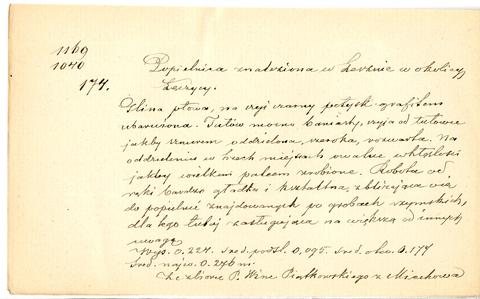 1169
1040
174.
Popielnica znaleziona w Leźnie w okolicy
Łęczycy.
Glina płowa, na szyi czarny połysk grafitem
ubarwiona. Tułów mocno baniasty, szyja od tułowu
jakby sznurem oddzielona, szeroka, rozwarta. Na
oddzieleniu w trzech miejscach owalne wklęsłości
jakby wielkim palcem zrobione. Robota od
ręki bardzo gładka i kształtna, zbliżająca się
do popielnic znajdowanych po grobach rzymskich,
dla tego tutaj zasługująca na większą od innych
uwagę
Wys. 0.224. Śred. podst. 0,095. Śred. otw. 0.177
Śred. najw. 0.246 m.
Ze zbiorów P. Wine Piątkowskiego z Miechowa